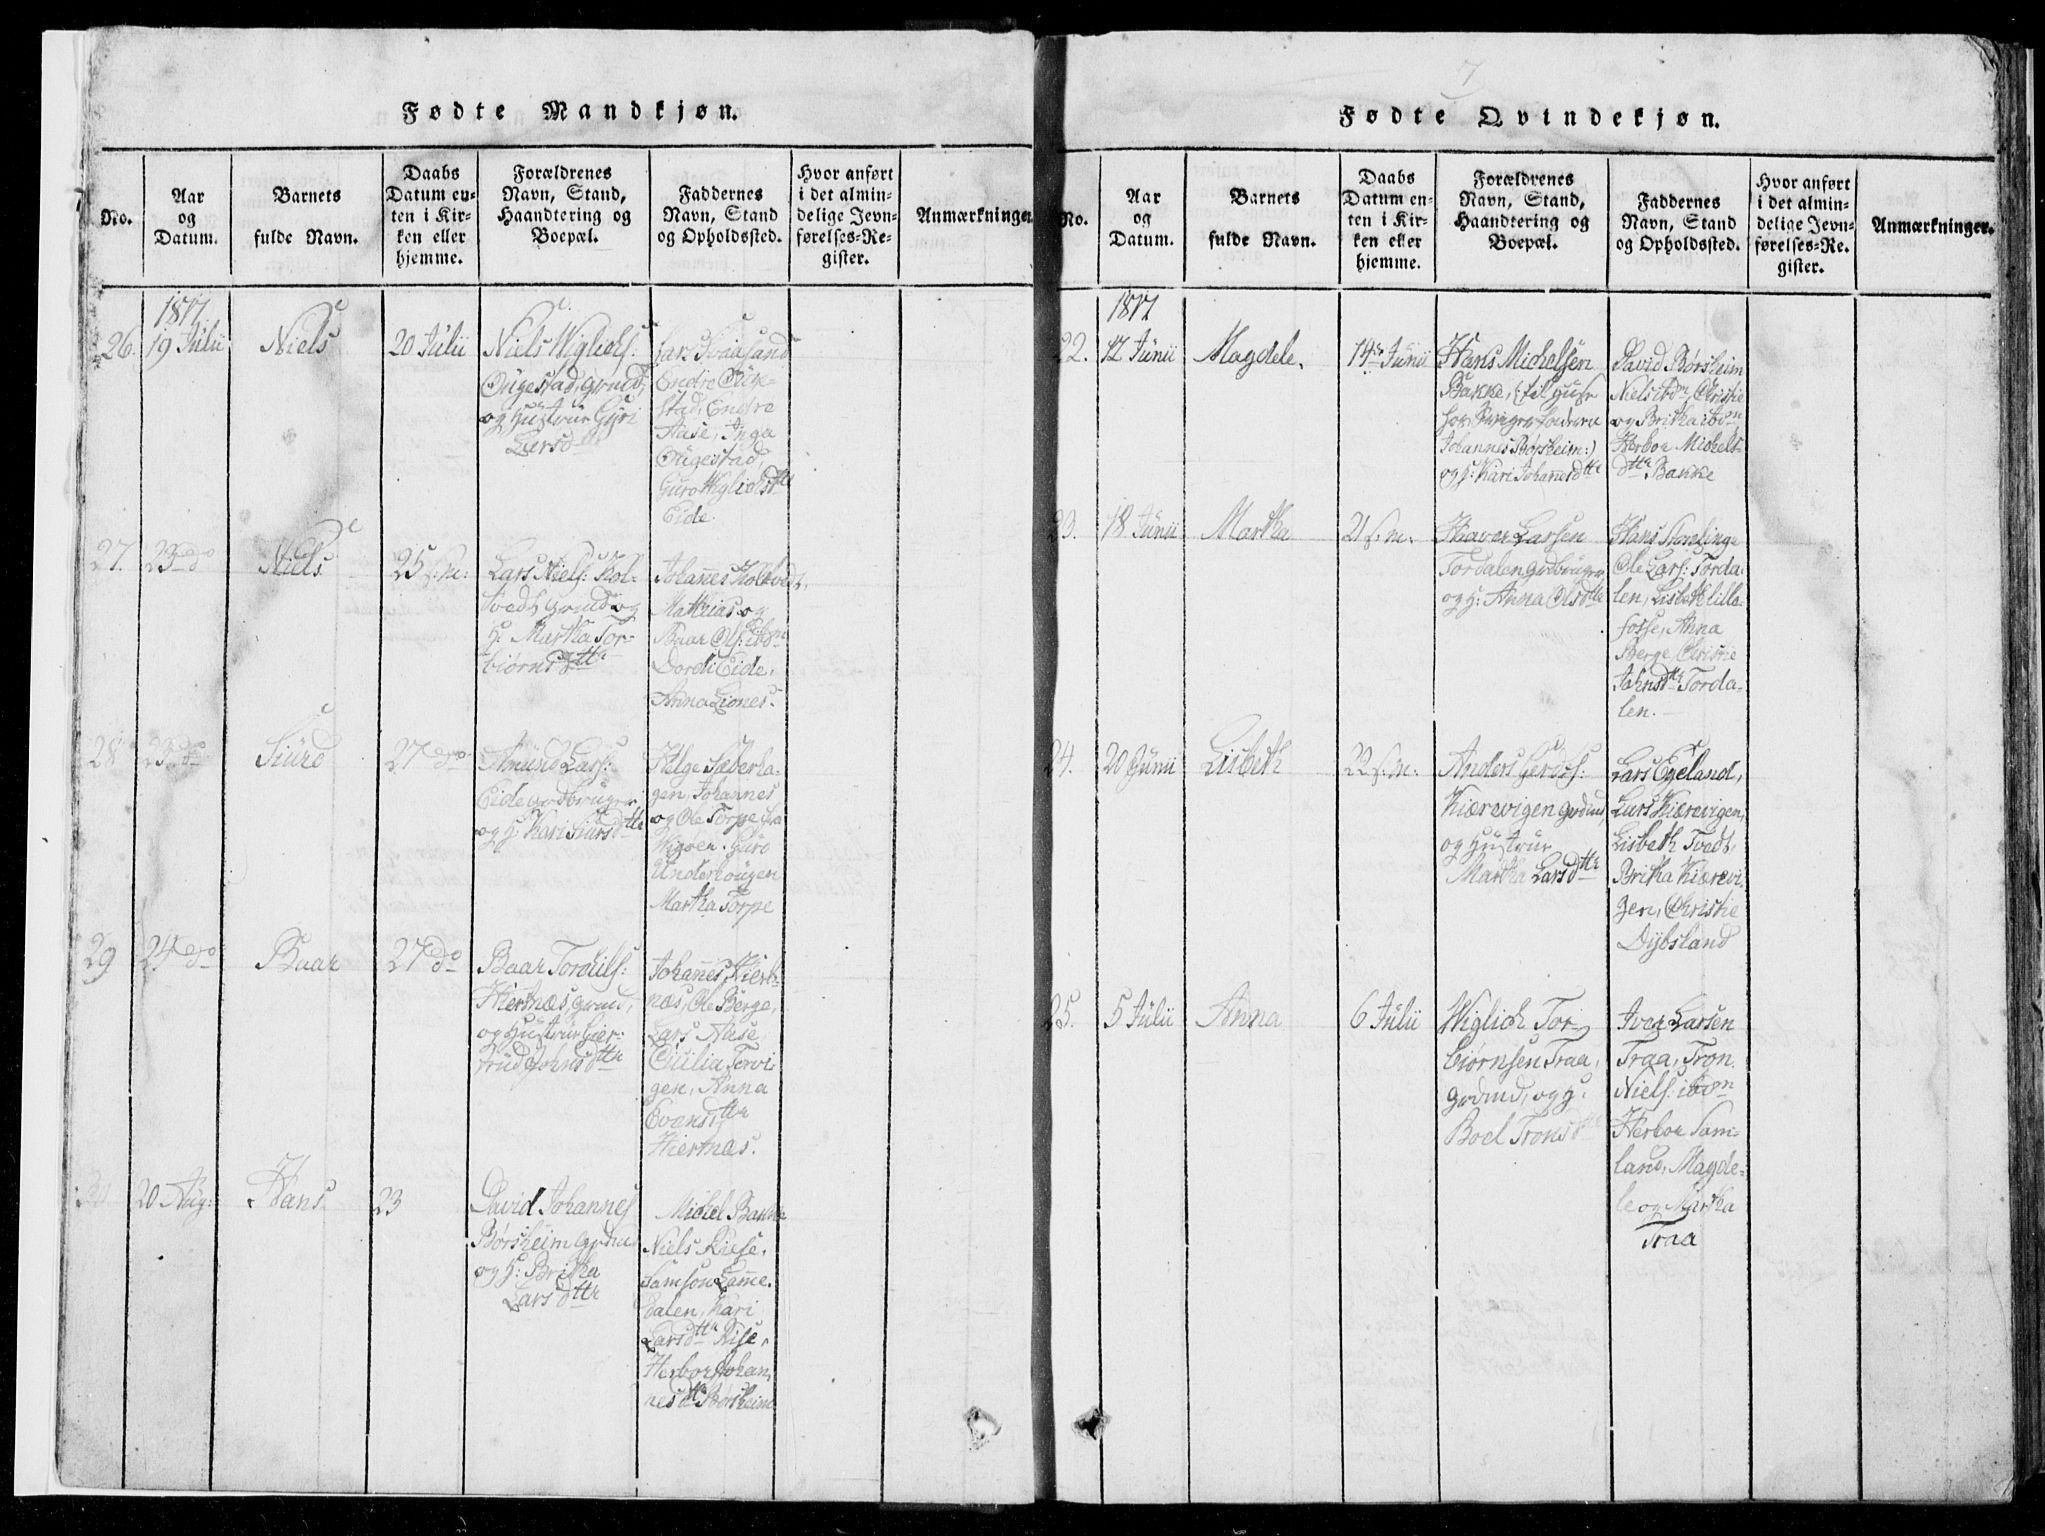 7
Fødte Mandkjøn.
No.
Aar
og
Datum.
Barnets
fulde Navn.
Daabs
Datum en-
ten i Kir-
ken eller
hjemme.
Forældrenes
Navn, Stand,
Haandtering og
Boepæl.
Faddernes
Navn, Stand
og Opholdssted.
Hvor anført
i det almin-
delige Jevn-
førelses-Re-
gister.
Anmærkninger.
1817
26. 19 Julii
Niels
20 Julii
Niels Wiglichs:
Ougestad, grmd,
og Hustrue Guri
Larsd
Lars Svaasand
Endre Ouge-
stad, Endre
Aase, Inga
Ougestad
Guro Wiglichsdttr
Eide.
27. 23 do
Niels
25 s: m:
Lars Niels: Kol-
tvedt grmd og
H: Martha Tor-
biørnsdttr
Johannes Koltvedt,
Mathias og
Baar Ols: ibdm
Dordi Eide,
Anna Liones.
28 23 do
Siurd
27 do
Amund Lars:
Eide grdbruger
og H: Kari Siursdttr
Helge Sæberha-
gen, Johannes
og Ole Torpe fra
Wigøen. Guro
Underhougen
Martha Torpe
29 24 do
Baar
27 do
Baar Torkils:
Hiertnæs, grmd,
og Hustrue Gier-
trud Johnsdttr
Johannes Hiert-
næs, Ole Berge,
Lars Aase
Cicilia Torvi-
gen, Anna
Evensdttr
Hiertnæs.
20 Aug:
Hans
23
David Johannes
Børsheim grdmd
og H: Britha
Larsdttr
Michel Bakke
Niels Riise,
Samson Lame-
dalen, Kari
Larsdttr Riise,
Herbor Johan-
nesdtr Børsheim
Fødte Qvindekjøn.
No.
Aar
og
Datum.
Barnets
fulde Navn.
Daabs
Datum en-
ten i Kir-
ken eller
hjemme.
Forældrenes
Navn, Stand,
Haandtering og
Boepæl.
Faddernes
Navn, Stand
og Opholdssted.
Hvor anført
i det almin-
delige Jevn-
førelses-Re-
gister.
Anmærkninger.
1817
22. 12 Junii
Magdele.
14de Junii
Hans Michelsen
Bakke, (: til Huse
hos Svigerfaderen
Johannes Børsheim:)
og H: Kari Johannesdttr
David Børsheim
Niels ibdm, Christie
og Britha ibdm
Herbor Michels-
dttr Bakke
23. 18 Junii
Martha
21 s: m:
Haavor Larsen
Tordalen grdbruger
og H: Anna Olsdttr
Hans
Ole Lars: Torda-
len, Lisbeth lille-
fosse, Anna
Berge, Christie
Johnsdttr Torda-
len.
24. 20 Junii
Lisbeth
22 s: m:
Anders Gerdts:
Kiærevigen grdmd
og Hustrue
Martha Larsdttr
Lars Egeland,
Lars Kiærevigen,
Lisbeth Tvedt,
Britha Kiærevi-
gen, Christie
Dybsland
25. 5 Julii
Anna
6 Julii
Wiglich Tor-
biørnsen Traa,
grdmd, og H:
Boel Tronsdttr
Iver Larsen
Traa, Tron
Niels: ibdm
Herbor Sam-
land, Magde-
le og Martha
Traa